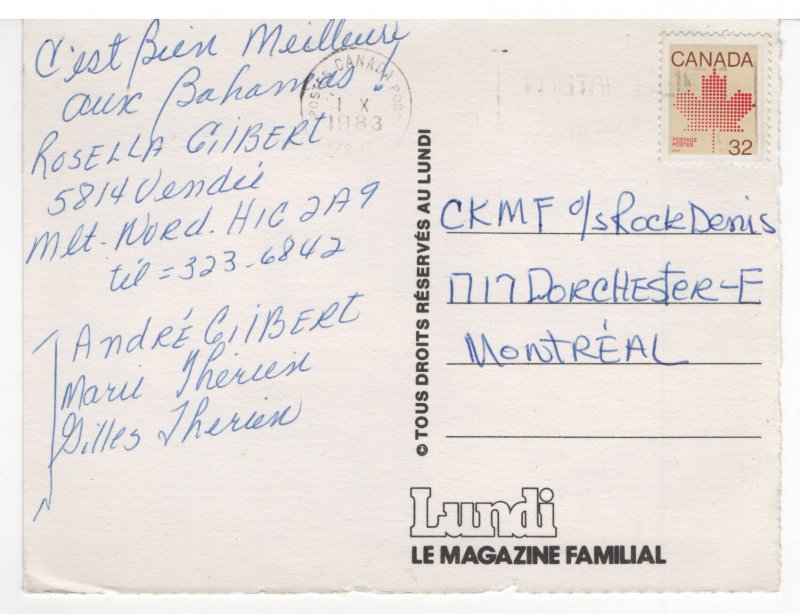 C'est Bien Meilleure
aux Bahamas!
ROSELLA GILBERT
5814 Vendée
Mlt. Nord. H1G 2A9
tél = 323-6842
ANDRÉ GILBERT
Marie Thérien
Gilles Therien
POSTES CANADA POS
I X
1983
CANADA
POSTAGE
POSTES
32
CKMF o/s Rock Denis
1717 DORCHESTER-E
MONTRÉAL
© TOUS DROITS RÉSERVÉS AU LUNDI
Lundi
LE MAGAZINE FAMILIAL